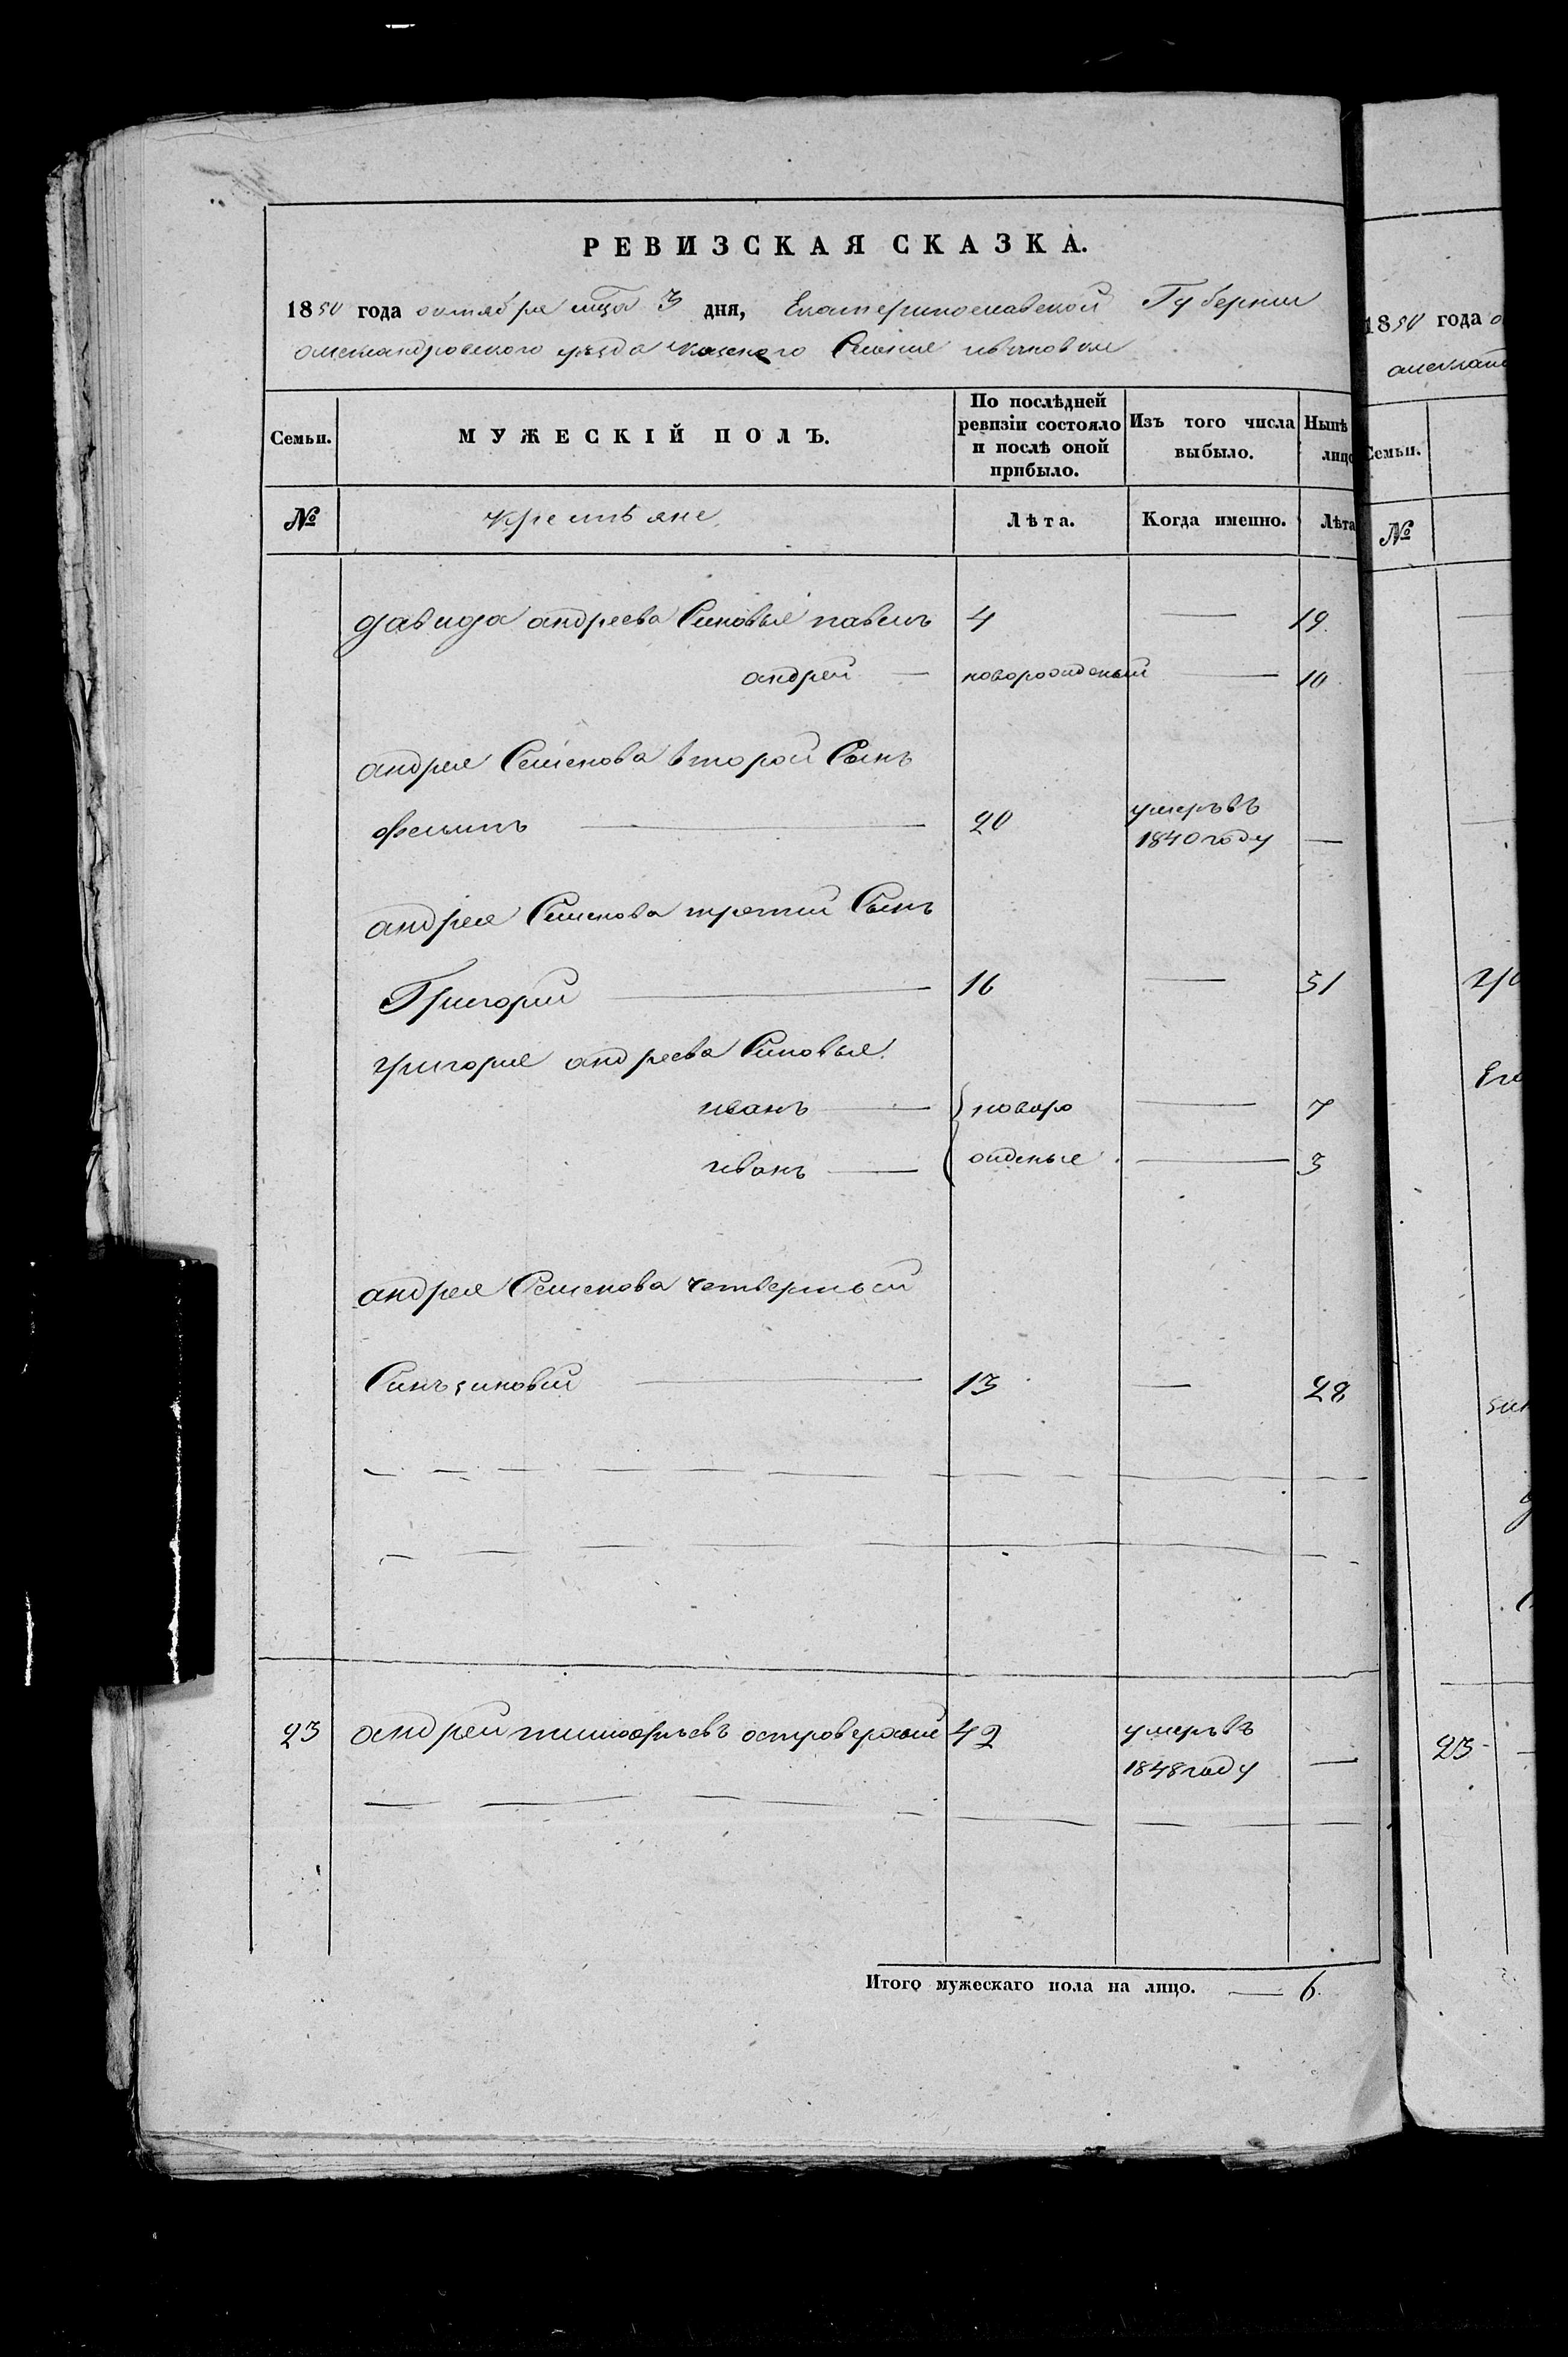 РЕВИЗСКАЯ СКАЗКА.
1850 года октября мца 3 дня, Екатеринославской Губернии
александровского уезда Селения
МУЖЕСКІЙ ПОЛЪ.
Семьи.
По послѣдней ревизіи состояло и послѣ оной прибыло.
Изъ того числа выбыло.
Нынѣ лицо
№ крестьяне Лѣта. Когда именно. Лѣта
давида андреева Синовья павелъ 4 — 19.
андрей — новорожденый — 10
андрея Семенова второй Сынъ
филипъ — 20 умеръ въ 1840 году —
андрея Семенова третий Сынъ
Григорий — 16 — 31
григория андреева Синовья.
иванъ — новоро — 7
иванъ — жденые — 3
андрея Семенова четвертый
Синъ зиновий — 13 — 28
23 андрей тимофѣевъ островерхий 42 умеръ въ 1848 году —
Итого мужескаго пола на лицо. — 6.
1850 года
Семьи.
№
23